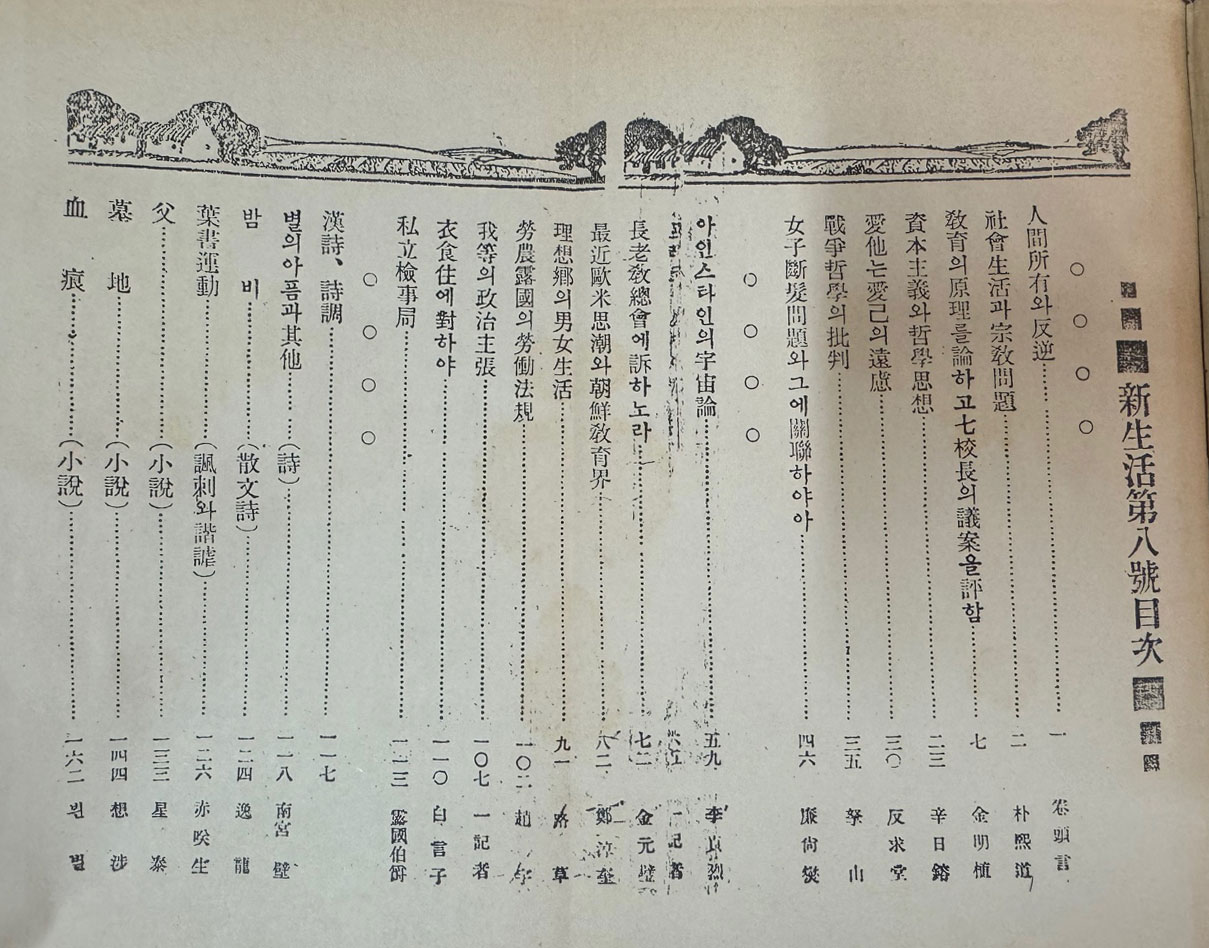 新生活第八號目次
○ ○ ○ ○
人間所有와反逆 一 卷頭言
社會生活과宗敎問題 二 朴熙道
敎育의原理를論하고七校長의議案을評함 七 金明植
資本主義와哲學思想 二三 辛日鎔
愛他는愛己의遠慮 三〇 反求堂
戰爭哲學의批判 三五 拏山
女子斷髮問題와그에關聯하야아 四六 廉尙燮
○ ○ ○ ○
아인스타인의宇宙論 五九 李
一記者
長老敎總會에訴하노라 七二 金元璧
最近歐米思潮와朝鮮敎育界 八二 鄭
理想鄕의男女生活 九一 路草
勞農露國의勞働法規 一〇二 趙
我等의政治主張 一〇七 一記者
衣食住에對하야 一一〇 白言子
私立檢事局 一一三 露國伯爵
○ ○ ○ ○
漢詩、詩調 一一七
별의아픔과其他 (詩) 一一八 南宮璧
밤비 (散文詩) 一二四 逸龍
葉書運動 (諷刺와諧謔) 一二六 赤咲生
父 (小說) 一三三 星泰
墓地 (小說) 一四四 想涉
血痕 (小說) 一六二 빈별